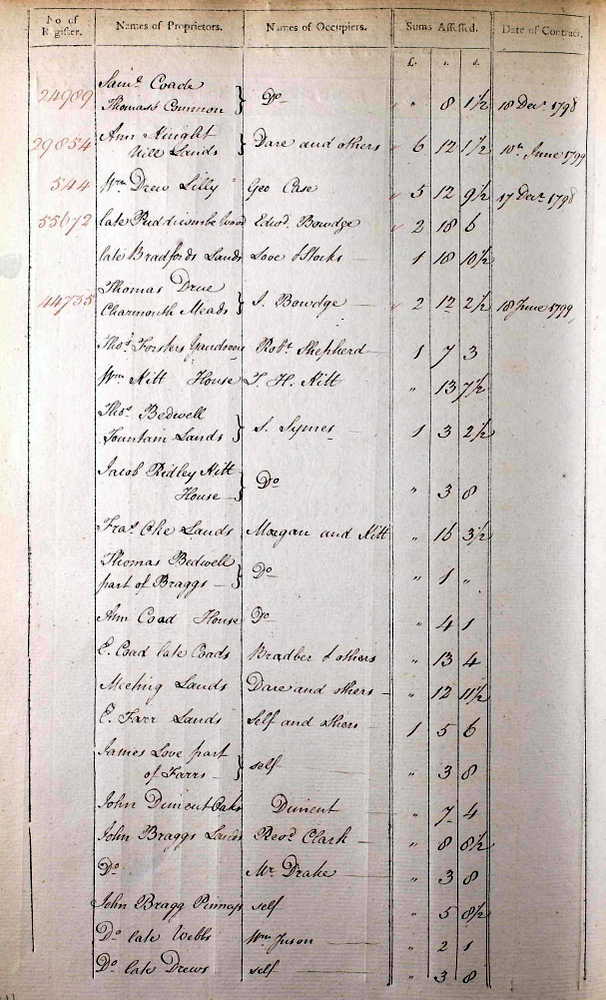 No of Register. Names of Proprietors. Names of Occupiers. Sums Assessed. Date of Contract.
£. s. d.
Saml Coade
24989 Thomas's Common } Do " 8 1½ 18 Decr 1798
Ann Knight
29854 Hill Lands } Dare and others 6 12 1½ 10th June 1799
544 Wm Drew Lilly Geo Case 5 12 9½ 17 Decr 1798
55672 late Puddicombe Wood Edwd Bowdge 2 18 6
late Bradfords Lands Love & Stocks 1 18 10½
Thomas Drue
44755 Charmouth Meads } S. Bowdge 2 12 2½ 18 June 1799
Thos Forsters Robt Shepherd 1 7 3
Wm Kitt House J. H. Kitt " 13 7½
Thos Bedwell
Fountain Lands } S. Symes 1 3 2½
Jacob Ridley Kitt
House } Do " 3 8
Fras Oke Lands Morgan and Kitt " 16 3½
Thomas Bedwell
part of Braggs } Do " 1 "
Ann Coad House Do " 4 1
E. Coad late Coads Bradber & others " 13 4
Meeting Lands Dare and others " 12 11½
E. Farr Lands Self and others 1 5 6
James Love part
of Farrs } self " 3 8
John Dunicut Oaks Dunicut " 7 4
John Braggs Lands Revd Clark " 8 8½
Do Mr Drake " 3 8
John Bragg self " 5 8½
Do late Webbs Wm Juson " 2 1
Do late Drews self " 3 8